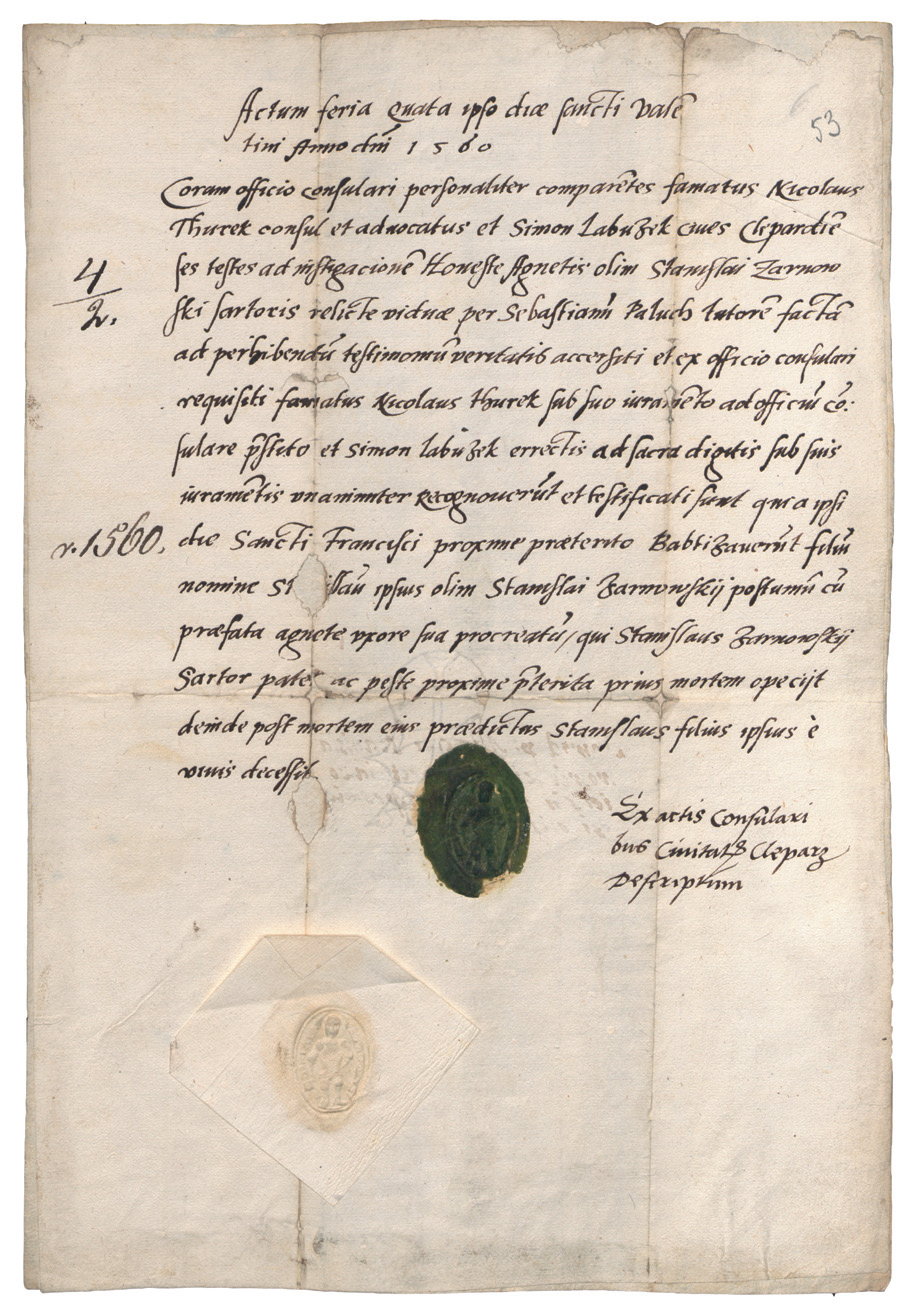 Actum feria Quata ipso diæ sancti Valē
tini Anno dm̄ 1560
53
Coram officio consulari personaliter comparētes famatus Nicolaus
Thurek consul et advocatus et Simon Labuzek cives Clepardiē
ses testes ad instigacionē Honeste Agnetis olim Stanislai Zarnow
4
2.
ski sartoris relicte viduæ per Sebastianū Paluch tutorē factā
ad perhibendū testimoniū veritatis accersiti et ex officio consulari
requisiti famatus Nicolaus Thurek sub suo iuramēto ad officiū cō:
sulare p̄stito et Simon Labuzek errectis ad sacra digitis sub suis
iuramētis vnanimiter Recognoverūt et testificati sunt quia ipsi
r. 1560.
die Sancti Francisci proxime præterito Babtizaverūt filiū
nomine St llaū ipsius olim Stanislai Zarnowskij postumū cū
præfata agnete vxore sua procreatū / qui Stanislaus Zarnowskij
Sartor pater ac peste proxime p̄terita prius mortem opecijt
deinde post mortem eius prædictus Stanislaus filius ipsius è
vivis decessit
Ex actis Consulari
bus Civitatis Cleparz
Descriptum